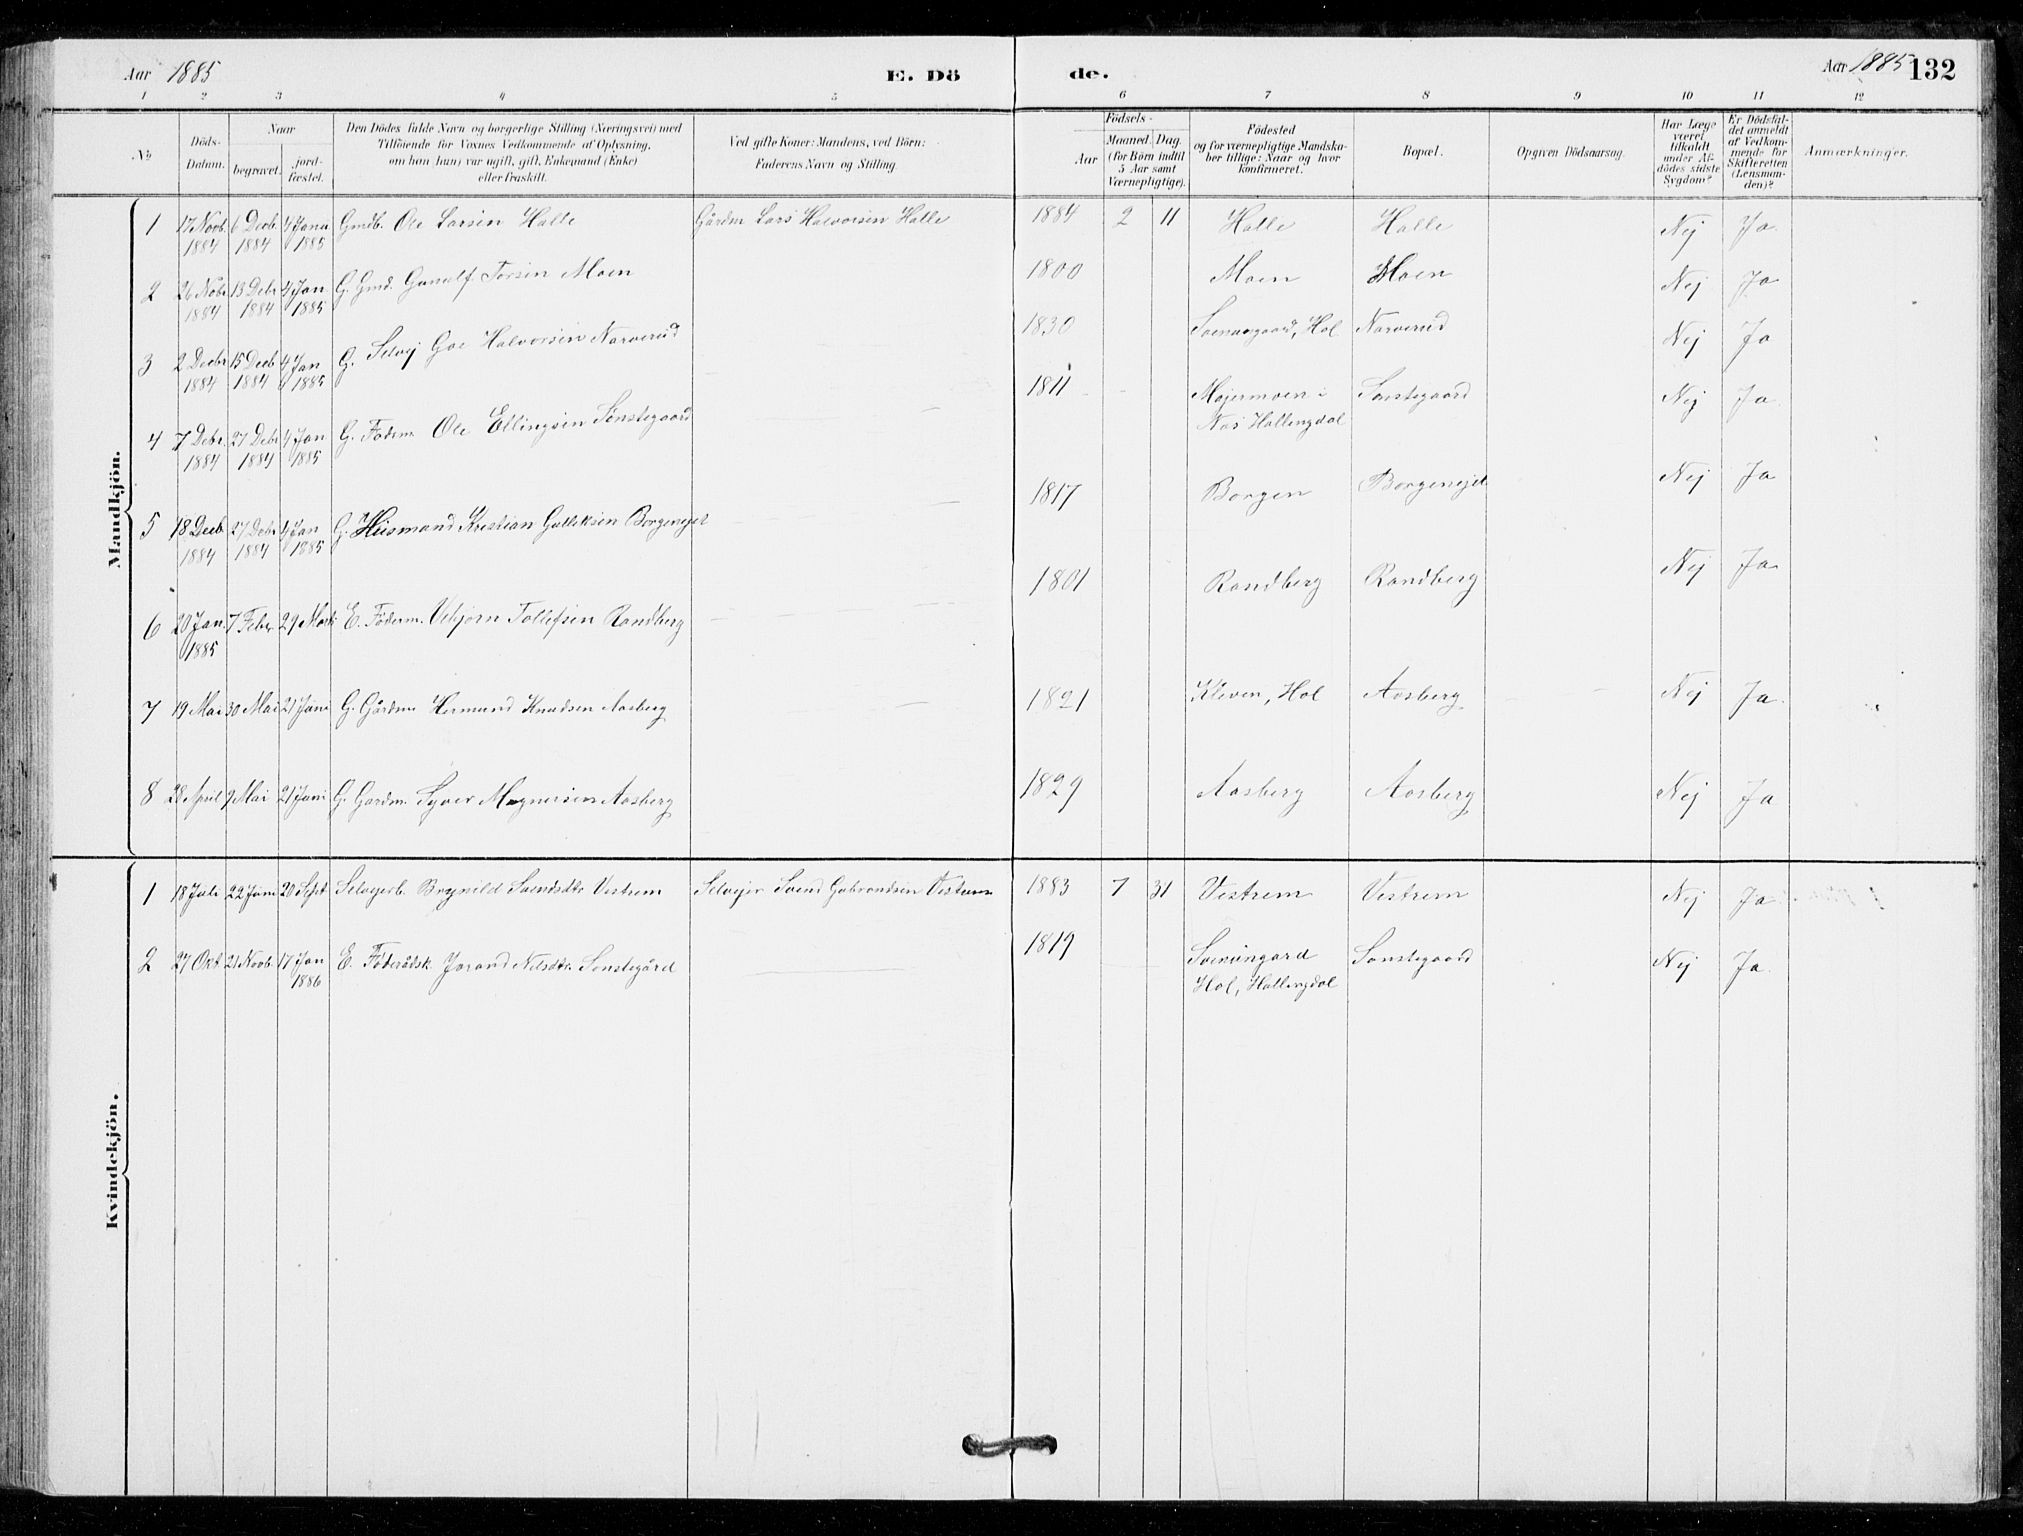 Aar 1885 E. Dö de. Aar 1885 132
1 2 3 4 5 6 7 8 9 10 11 12
No
Döds-
Datum.
Naar
begravet.
jord-
fæstet.
Den Dödes fulde Navn og borgerlige Stilling (Næringsvei) med
Tilföiende for Voxnes Vedkommende af Oplysning,
om han (hun) var ugift, gift, Enkemand (Enke)
eller fraskilt.
Ved gifte Koner: Mandens, ved Börn:
Faderens Navn og Stilling.
Födsels-
Aar
Maaned. Dag.
(for Börn indtil
5 Aar samt
Værnepligtige).
Födested
og for værnepligtige Mandska-
ber tillige: Naar og hvor
konfirmeret.
Bopæl.
Opgiven Dödsaarsag.
Har Læge
været
tilkaldt
under Af-
dödes sidste
Sygdom?
Er Dödsfal-
det anmeldt
af Vedkom-
mende for
Skifteretten
(Lensman-
den)?
Anmærkninger.
Mandkjön.
1 17 Novb. 6 Decb. 4 Janu Gmdb. Ole Larsen Halle Gårdm Lars Halvorsen Halle 1884 2 11 Halle Halle Nej Ja
1884 1884 1885
2 26 Nobr 13 Debr 4 Jan G. Gmd. Gunulf Torsen Moen 1800 Moen Moen Nej Ja
1884 1884 1885
3 2 Decbr 15 Decb 4 Jan G. Selvej Goe Halvorsen Narverud 1830 Hol Narverud Nej Ja
1884 1884 1885
4 7 Debr. 27 Debr 4 Jan G. Föderm Ole Ellingsen Sønstegaard 1811 Mojermoen i Sønstegaard Nej Ja
1884 1884 1885 Nes Hallingdal
5 18 Decb 27 Debr 4 Jan G. Husmand Kristian Gulleksen Borgenejet 1817 Borgen Borgenejet Nej Ja
1884 1884 1885
6 20 Jan. 7 Febr 29 Marts E. Föderm. Vebjørn Tollefsen Randberg 1801 Randberg Randberg Nej Ja
1885
7 19 Mai 30 Mai 21 Juni G. Gårdm Hermund Knudsen Aasberg 1821 Kleven, Hol Aasberg Nej Ja
8 28 April 9 Mai 21 Juni G. Gardm. Syver Magnersen Aasberg 1829 Aasberg Aasberg Nej Ja
Kvindekjön.
1 18 Juli 22 Juni 20 Sept Selvejerb. Brynild Svendsdtr Vestrem Selvejer Svend Gubrandsen Vestrem 1883 7 31 Vestrem Vestrem Nej Ja
2 27 Okt 21 Novb 17 Jan E. Föderådsk. Jorand Nilsdtr. Sønstegård 1819 Sveinngard Sønstegaard Nej Ja.
1886 Hol, Hallingdal